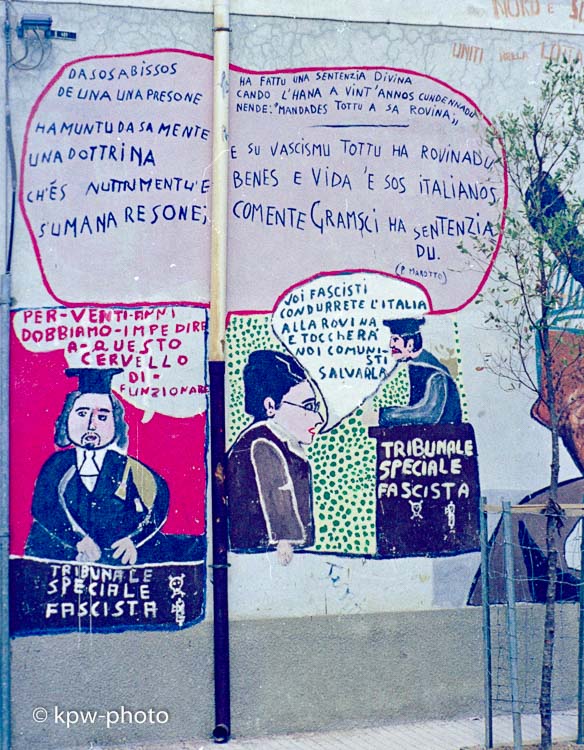 NORD E
UNITI NELLA LOTTA
DA SOS ABISSOS
DE UNA UNA PRESONE
HA MUNTU DA SA MENTE
UNA DOTTRINA
CH'ÉS NUTRIMENTU 'E
S'UMANA RESONE;
HA FATTU UNA SENTENZIA DIVINA
CANDO L'HANA A VINT'ANNOS CUNDENNADU
NENDE: "MANDADES TOTTU A SA ROVINA;,,
E SU VASCISMU TOTTU HA ROVINADU
BENES E VIDA 'E SOS ITALIANOS,
COMENTE GRAMSCI HA SENTENZIA
DU.
(P. MAROTTO)
PER-VENTI-ANNI
DOBBIAMO-IMPEDIRE
A-QUESTO
CERVELLO
DI-
FUNZIONARE
TRIBUNALE
SPECIALE
FASCISTA
VOI FASCISTI
CONDURRETE L'ITALIA
ALLA ROVINA
E TOCCHERÀ
NOI COMUNI-
STI
SALVARLA
TRIBUNALE
SPECIALE
FASCISTA
© kpw-photo